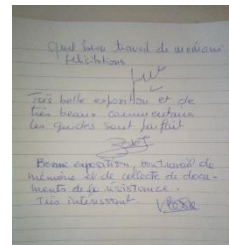 Quel beau travail de mémoire
félicitations
Très belle exposition et de
très beaux commentaires
les guides sont parfait
Bonne exposition, bon travail de
mémoire et de collecte de docu-
ments de la résistance.
Très intéressant